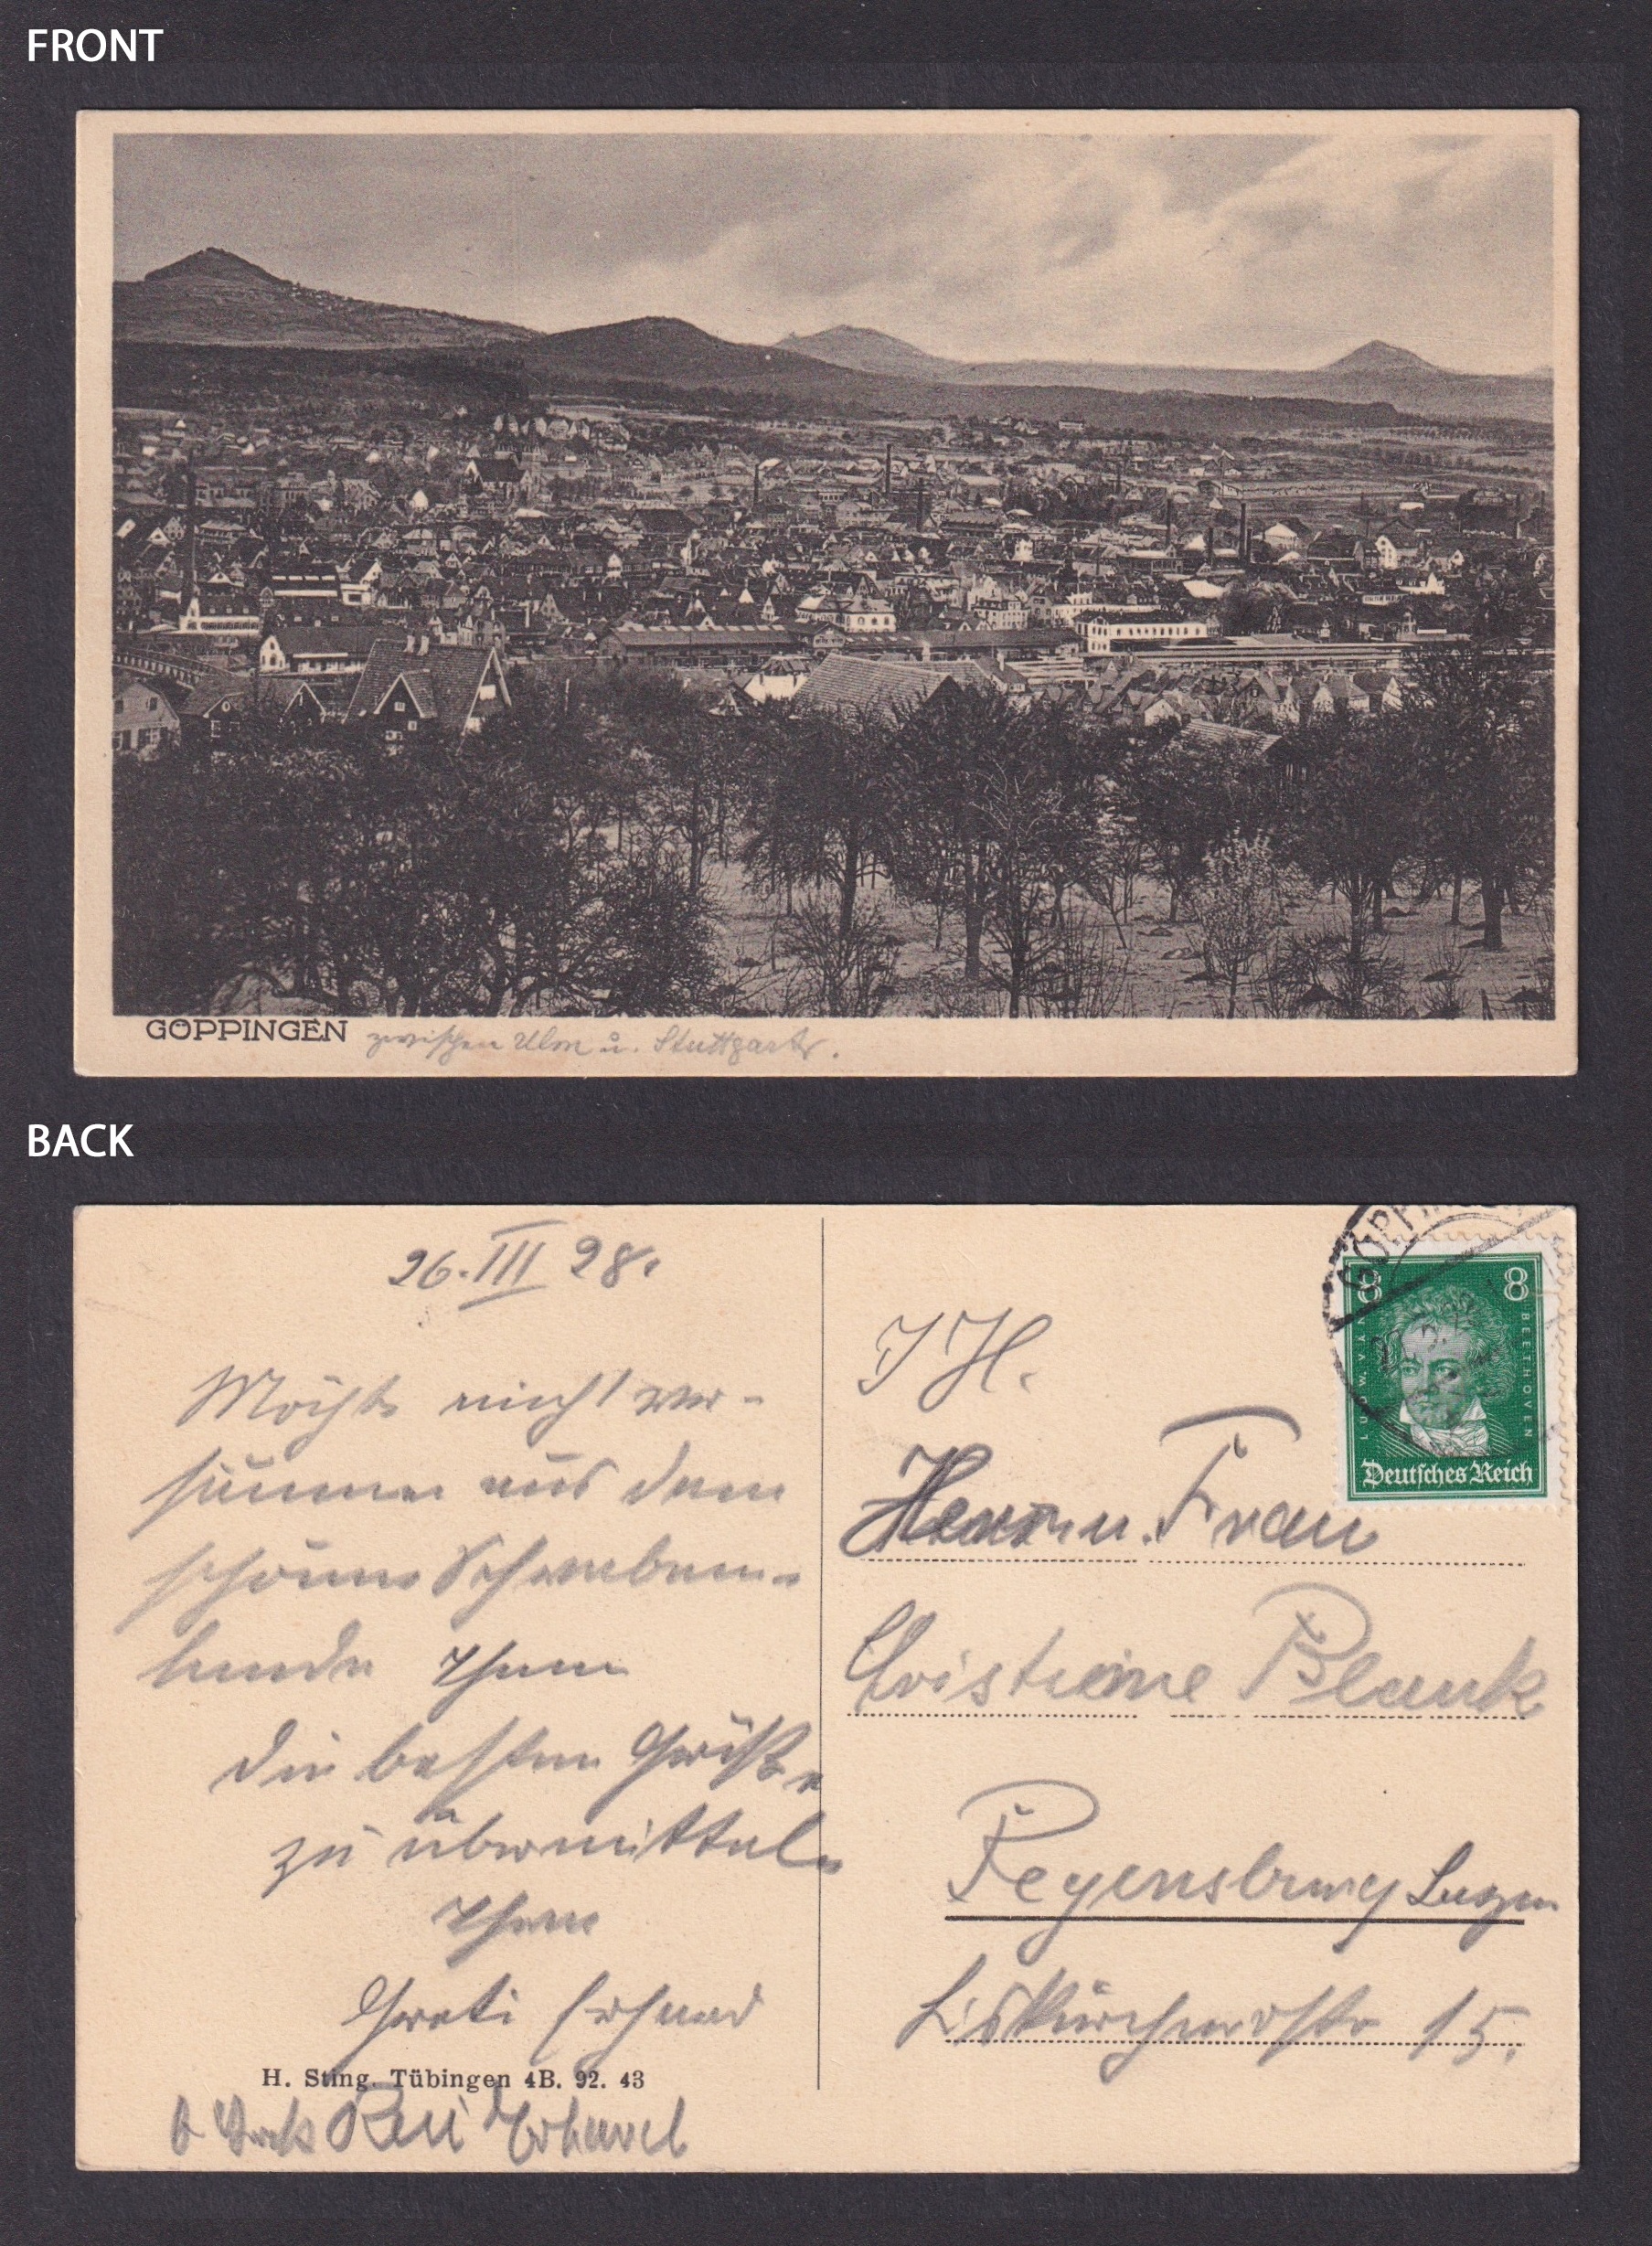 FRONT
GÖPPINGEN zwischen Ulm u. Stuttgart.
BACK
26. III 28.
Möchte nicht ver-
säumen aus dem
schönen Schwaben-
lande Ihnen
die besten Grüße
zu übermitteln
Ihre
Greti Erhard
H. Sting, Tübingen 4B. 92. 43
GÖPPINGEN
8 8
LUDW. VAN BEETHOVEN
Deutsches Reich
I H.
Herrn u. Frau
Christiane Blank
Regensburg
15.